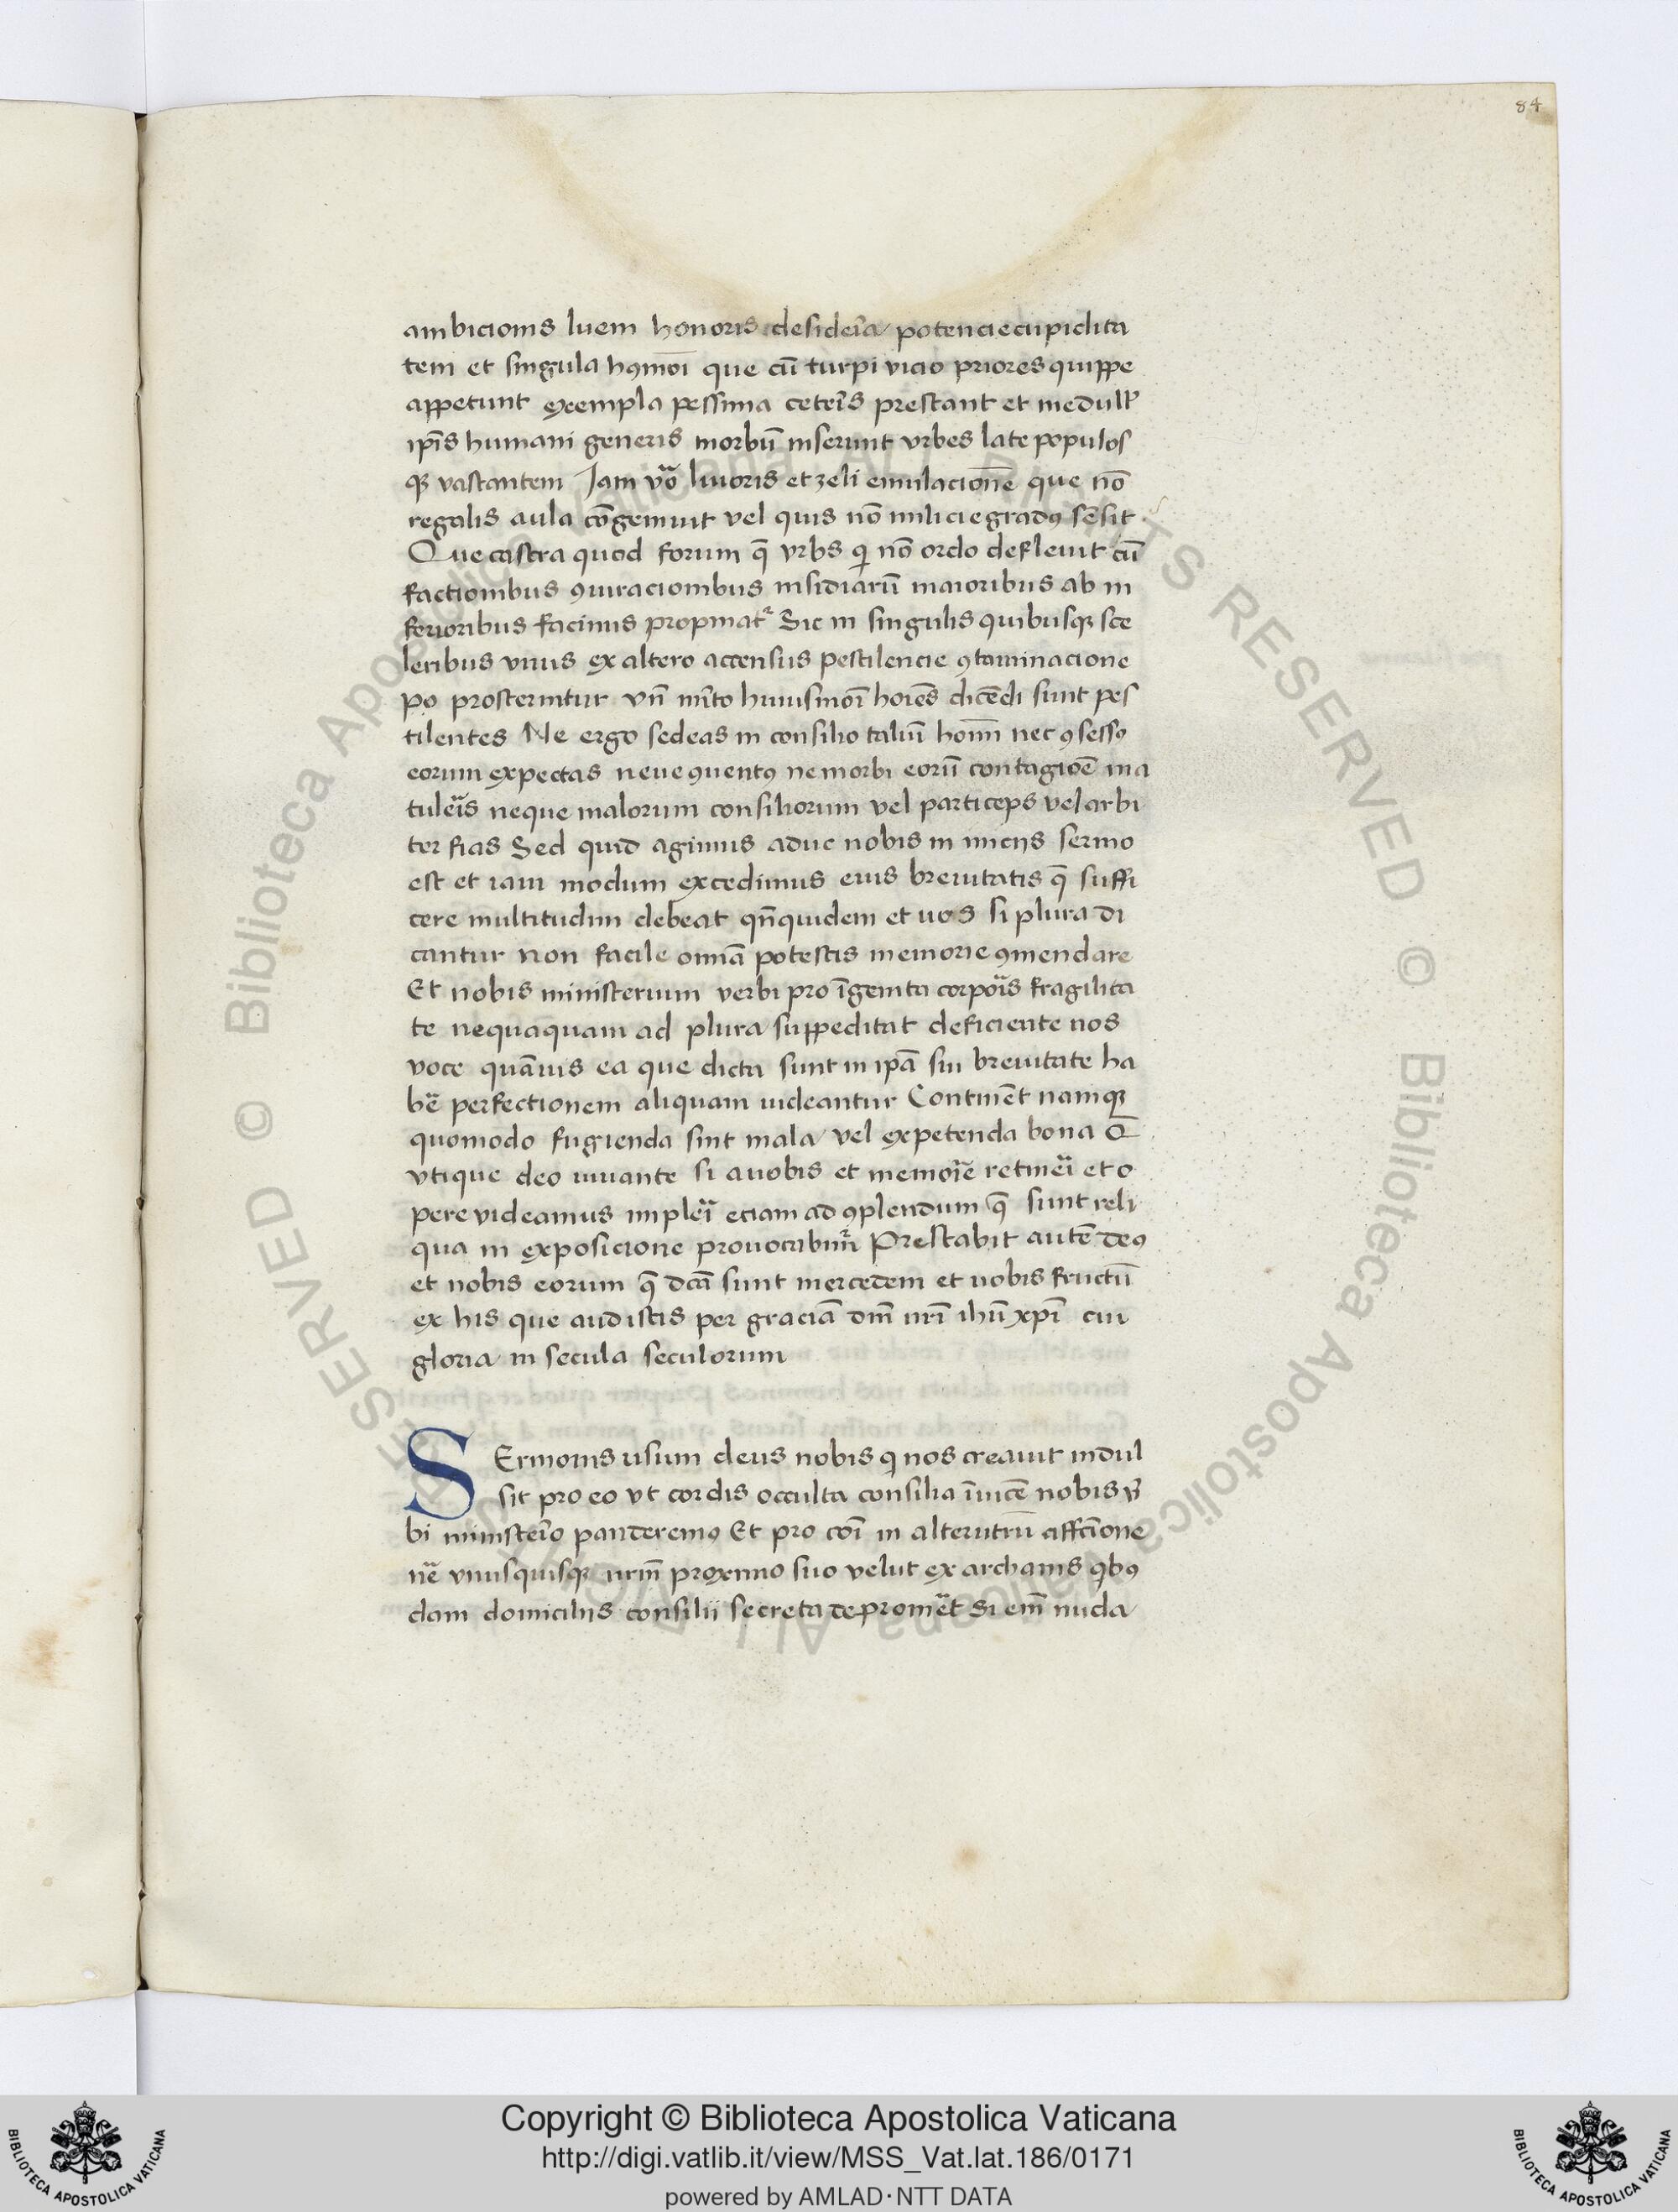 84
ambicionis luem honoris desideia potenciecupidita
tem et singula hꝯmoi que cū turpi vicio priores quippe
appetunt exempla pessima ceteis prestant et medull'
ip̄is humani generis morbū inserunt vrbes late populos
qꝫ vastantem Iam vo liuoris et zeli emulacione que nō
regalis aula cōgemuit vel quis nō miliciegradꝯ sēsit
Que castra quod forum q̄ vrbs q nō ordo defleuit cū
factionibus ꝯiuracionibus insidiarū maioribus ab in
ferioribus facinus propinat Sic in singulis quibusqꝫ sce
leribus vnus ex altero accensus pestilencie ꝯtaminacione
po prosternitur vn̄ mito huiusmoi hoies dicēdi sunt pes
tilentes Ne ergo sedeas in consilio taliū hoim nec ꝯsesso
eorum expectas neueꝯuentꝯ ne morbi eorū contagioē ma
tuleis neque malorum consiliorum vel particeps vel arbi
ter fias Sed quid agimus aduc nobis in iniciis sermo
est et iam modum excedimus eius breuitatis q̄ suffi
cere multitudini debeat qn̄quidem et uos si plura di
cantur non facile omīa potestis memorie ꝯmendare
Et nobis ministerium verbi pro īgenita corpois fragilita
te nequaquam ad plura suppeditat deficiente nos
voce quāuis ea que dicta sunt in ipā sui breuitate ha
bē perfectionem aliquam uideantur Continēt namqꝫ
quomodo fugienda sint mala vel expetenda bona Q
vtique deo iuuante si auobis et memoie retinei et o
pere videamus implei eciam ad ꝯplendum q̄ sunt reli
qua in exposicione prouocabimr Prestabit autē deꝯ
et nobis eorum q̄ dcā sunt mercedem et uobis fructū
ex his que audistis per graciā dnī nrī ihū xpī cui
gloria in secula seculorum
SErmonis usum deus nobis q nos creauit indul
sit pro eo vt cordis occulta consilia īuicē nobis v̄
bi ministeio panderemꝯ Et pro coī in alterutrū affcione
nē vnusquisqꝫ nrm̄ proximo suo velut ex archanis qbꝯ
dam domiciliis consilii secreta depromēt Si em̄ nuda
© Biblioteca Apostolica Vaticana ALL RIGHTS RESERVED © Biblioteca Apostolica Vaticana ALL RIGHTS RESERVED
Copyright © Biblioteca Apostolica Vaticana
http://digi.vatlib.it/view/MSS_Vat.lat.186/0171
powered by AMLAD·NTT DATA
BIBLIOTECA APOSTOLICA VATICANA
BIBLIOTECA APOSTOLICA VATICANA